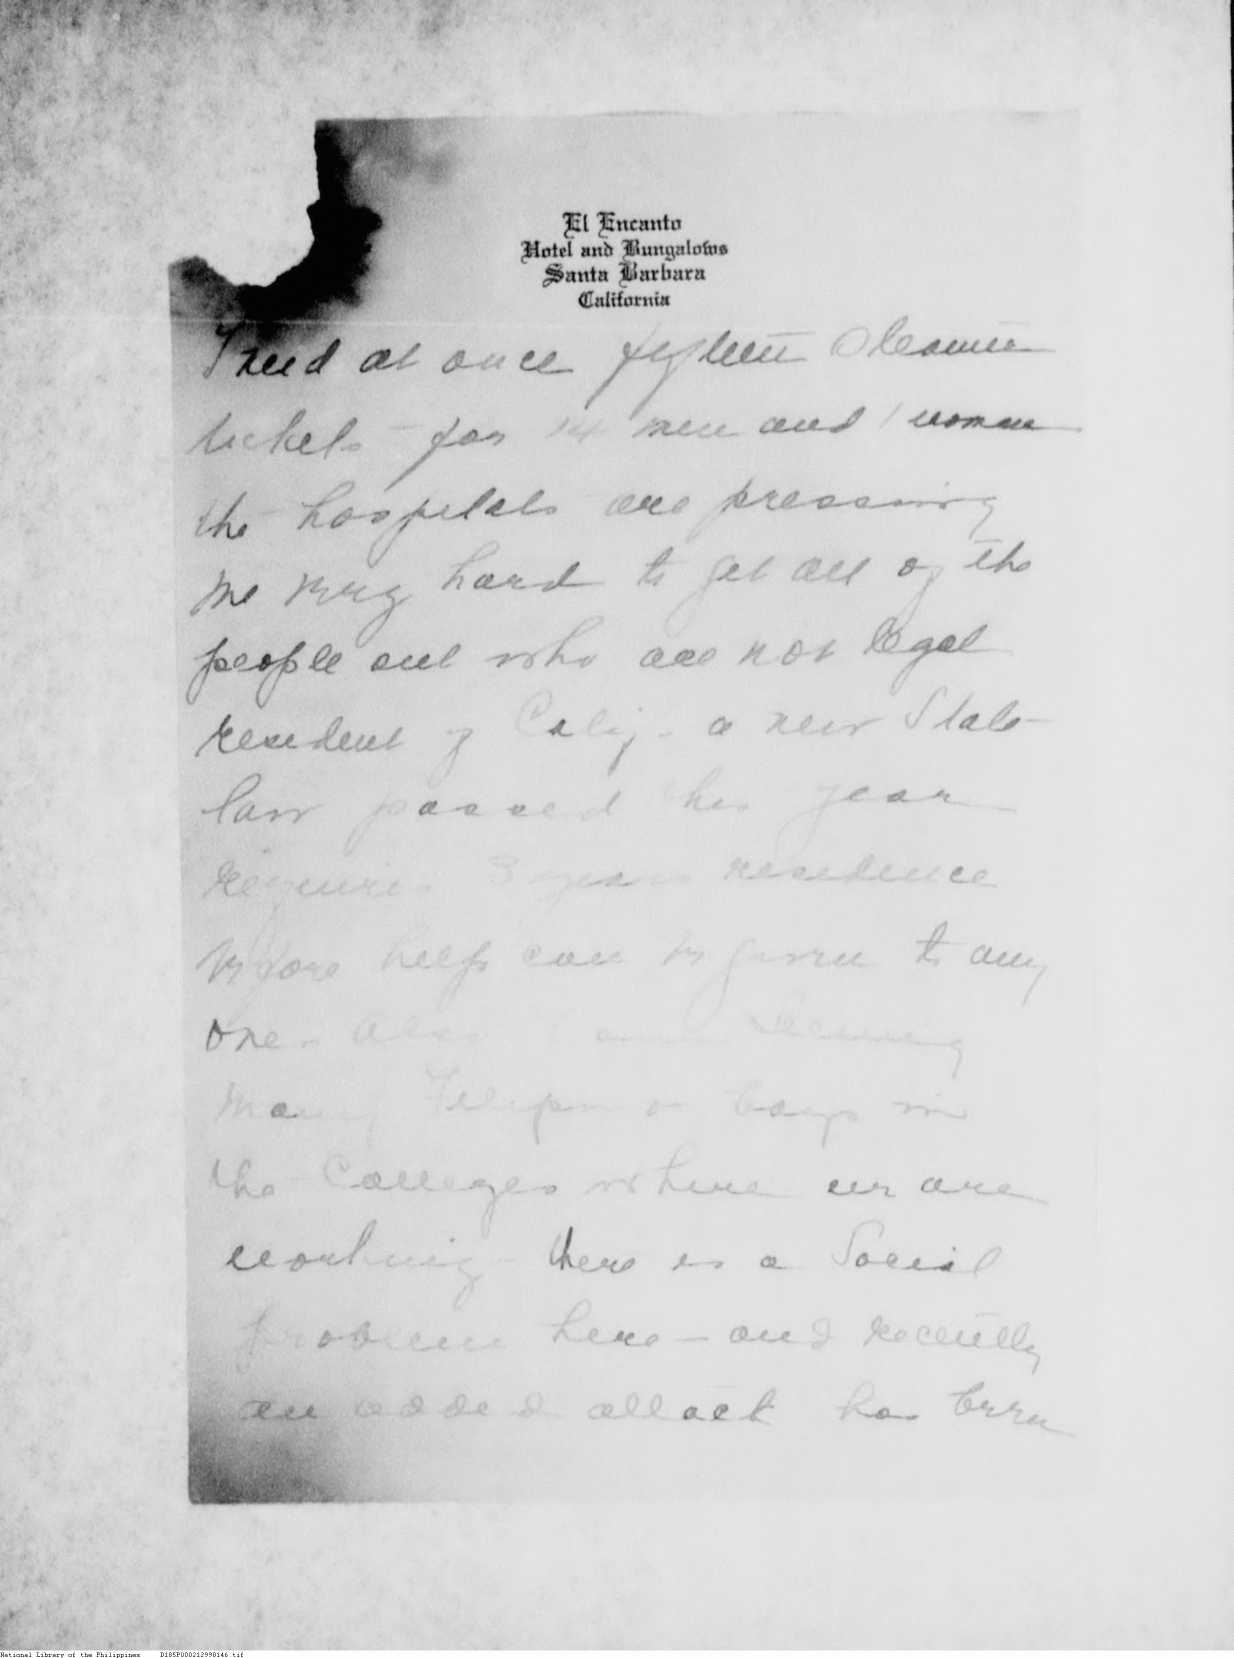 El Encanto
Hotel and Bungalows
Santa Barbara
California
I need at once fifteen Steamer
tickets - for 14 men and 1 woman
the hospitals are pressing
me very hard to get all of the
people out who are not legal
resident of Calif. - a new State
law passed this year
requires 3 years residence
before help can be given to any
one - Also I am
many Filipino boys in
the Colleges where we are
working - there is a Social
problem here - and recently
an added attack has been
National Library of the Philippines D185P000212998146.tif